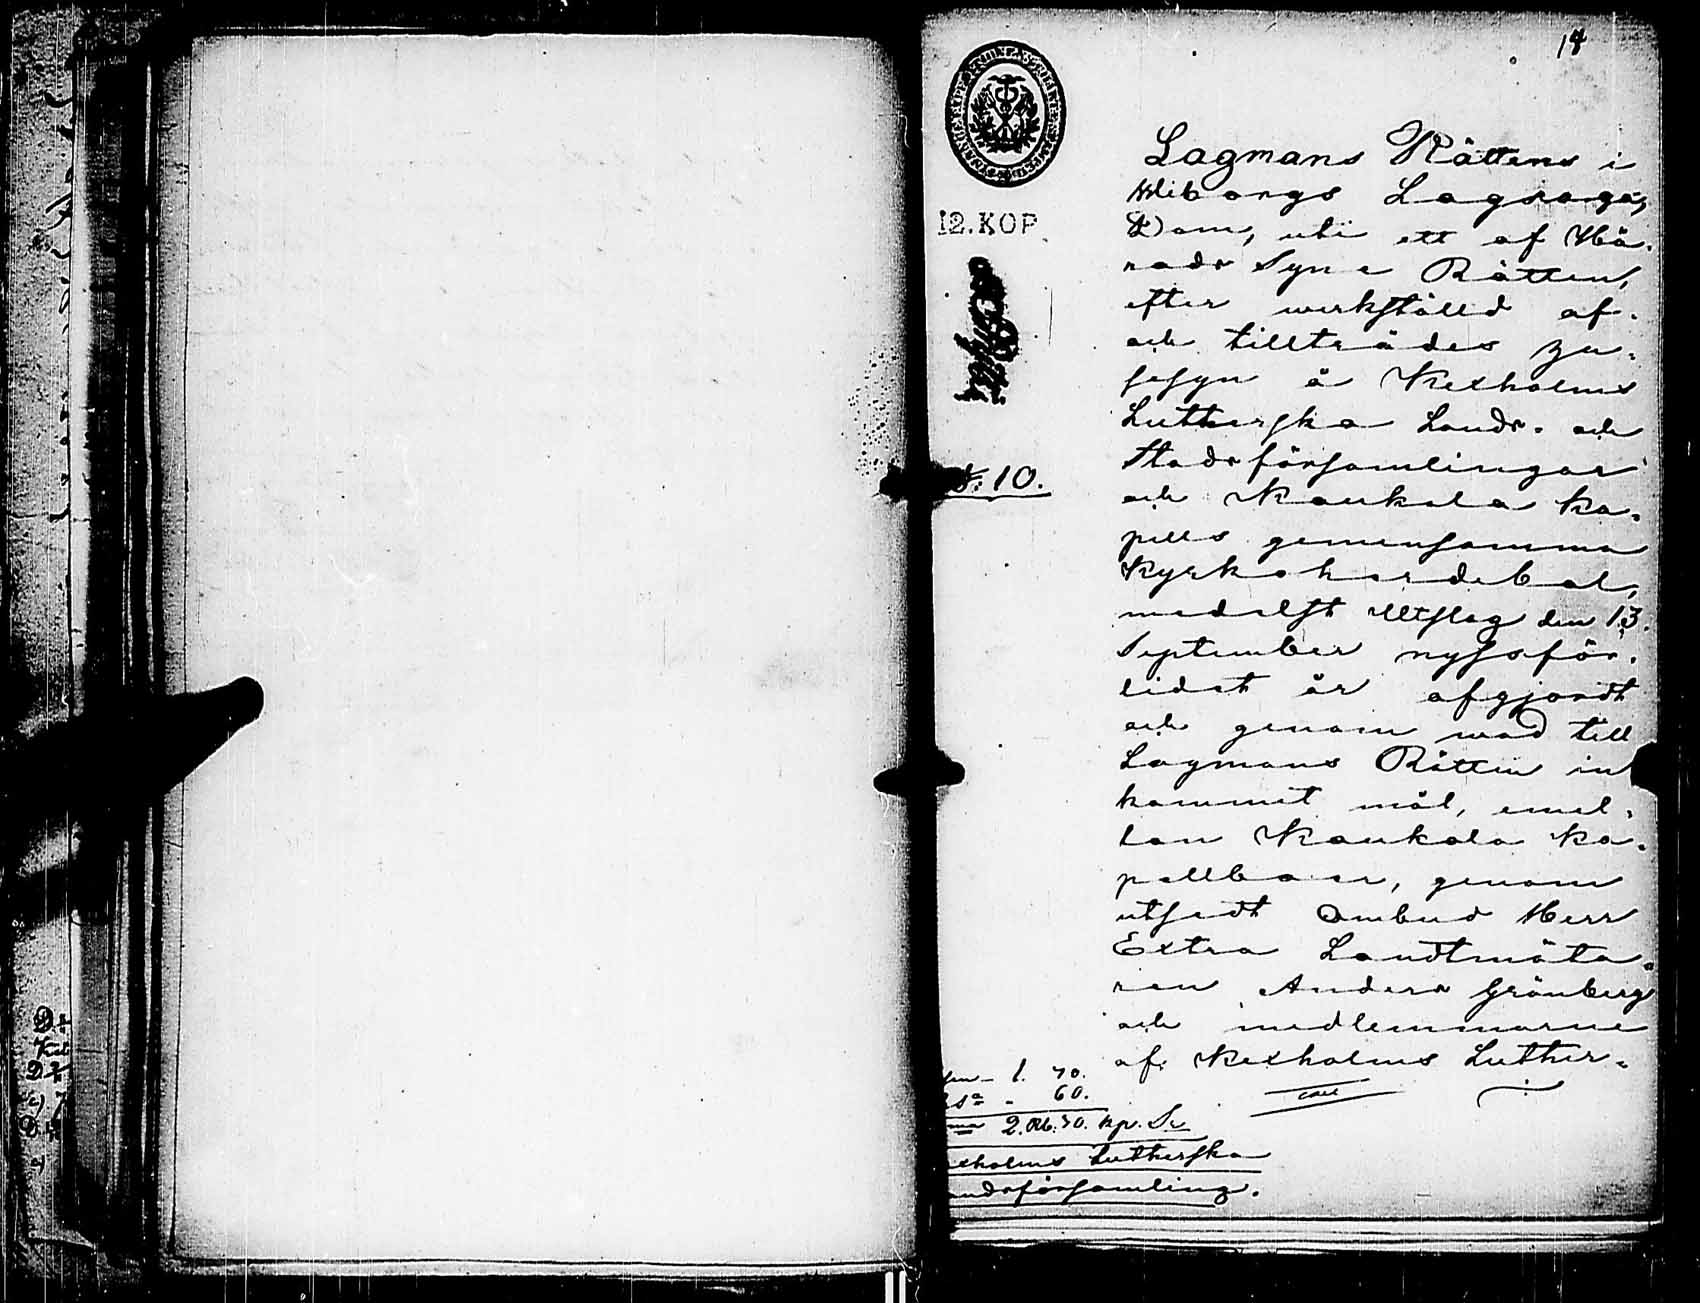 14
12. KOP.
Lagmans Rättens i
Wiborgs Lagsaga,
Dom, uti ett af Hä-
rads Syne Rätten,
efter werkställd af-
och tillträdes hu-
sesyn å Kexholms
Lutherska Lands- och
Stadsförsamlingar
och Kaukola ka-
pells gemensamma
Kyrkoherdebol,
medelst Utslag den 13.
September nyssför-
lidet år afgjordt
och genom wad till
Lagmans Rätten in
kommit mål, emel-
lan Kaukola Ka-
pellboer, genom
utsedt ombud Herr
Extra Landtmäta-
ren Anders Grönberg
och medlemmarne
af Kexholms Luther-
10.
1. 70.
60.
2. Rb. 30. kp. Sr
exholms Lutherska
andsförsamling.